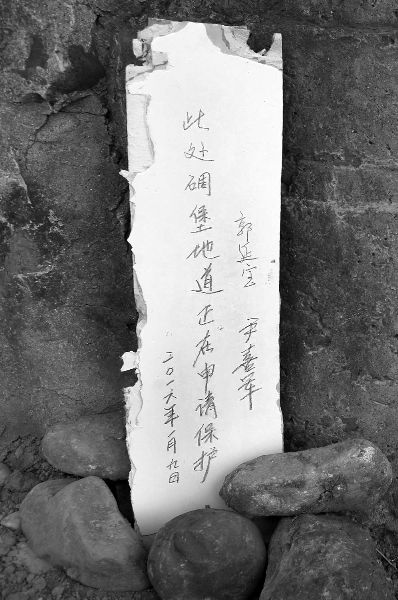 郭延宝 尹喜军
此处碉堡地道正在申请保护
二〇一六年一月九日